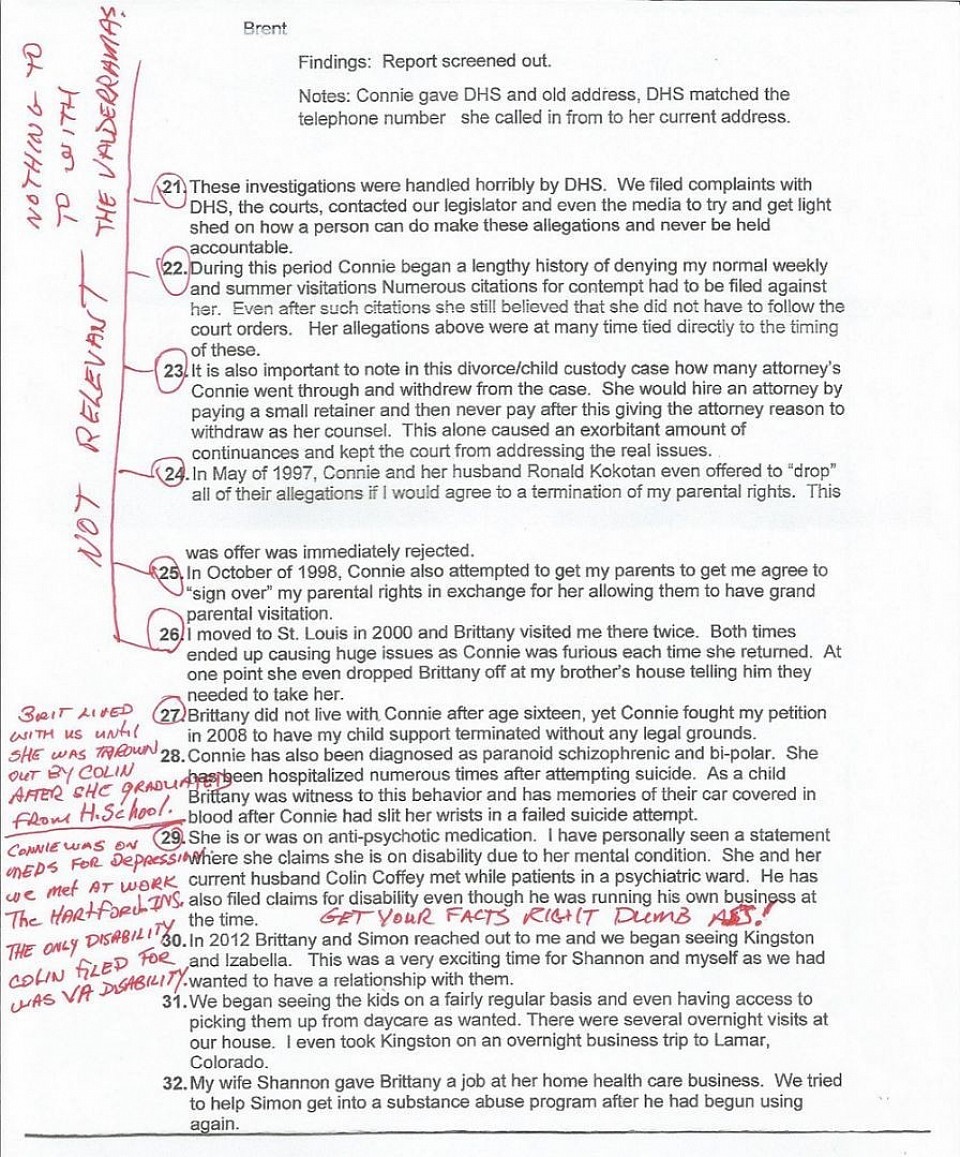 Brent
Findings: Report screened out.
Notes: Connie gave DHS and old address, DHS matched the
telephone number she called in from to her current address.
NOTHING TO
TO WITH
THE VALDERRAMAS.
NOT RELEVANT
21. These investigations were handled horribly by DHS. We filed complaints with
DHS, the courts, contacted our legislator and even the media to try and get light
shed on how a person can do make these allegations and never be held
accountable.
22. During this period Connie began a lengthy history of denying my normal weekly
and summer visitations Numerous citations for contempt had to be filed against
her. Even after such citations she still believed that she did not have to follow the
court orders. Her allegations above were at many time tied directly to the timing
of these.
23. It is also important to note in this divorce/child custody case how many attorney's
Connie went through and withdrew from the case. She would hire an attorney by
paying a small retainer and then never pay after this giving the attorney reason to
withdraw as her counsel. This alone caused an exorbitant amount of
continuances and kept the court from addressing the real issues.
24. In May of 1997, Connie and her husband Ronald Kokotan even offered to “drop”
all of their allegations if I would agree to a termination of my parental rights. This
was offer was immediately rejected.
25. In October of 1998, Connie also attempted to get my parents to get me agree to
“sign over” my parental rights in exchange for her allowing them to have grand
parental visitation.
26. I moved to St. Louis in 2000 and Brittany visited me there twice. Both times
ended up causing huge issues as Connie was furious each time she returned. At
one point she even dropped Brittany off at my brother's house telling him they
needed to take her.
27. Brittany did not live with Connie after age sixteen, yet Connie fought my petition
in 2008 to have my child support terminated without any legal grounds.
BRIT LIVED
WITH US UNTIL
SHE WAS THROWN
OUT BY COLIN
AFTER SHE GRADUATED
FROM H.SCHOOL.
28. Connie has also been diagnosed as paranoid schizophrenic and bi-polar. She
has been hospitalized numerous times after attempting suicide. As a child
Brittany was witness to this behavior and has memories of their car covered in
blood after Connie had slit her wrists in a failed suicide attempt.
29. She is or was on anti-psychotic medication. I have personally seen a statement
where she claims she is on disability due to her mental condition. She and her
current husband Colin Coffey met while patients in a psychiatric ward. He has
also filed claims for disability even though he was running his own business at
the time.
GET YOUR FACTS RIGHT DUMB ASS!
CONNIE WAS ON
MEDS FOR DEPRESSION.
WE MET AT WORK
THE HARTFORD INS.
THE ONLY DISABILITY
COLIN FILED FOR
WAS VA DISABILITY.
30. In 2012 Brittany and Simon reached out to me and we began seeing Kingston
and Izabella. This was a very exciting time for Shannon and myself as we had
wanted to have a relationship with them.
31. We began seeing the kids on a fairly regular basis and even having access to
picking them up from daycare as wanted. There were several overnight visits at
our house. I even took Kingston on an overnight business trip to Lamar,
Colorado.
32. My wife Shannon gave Brittany a job at her home health care business. We tried
to help Simon get into a substance abuse program after he had begun using
again.